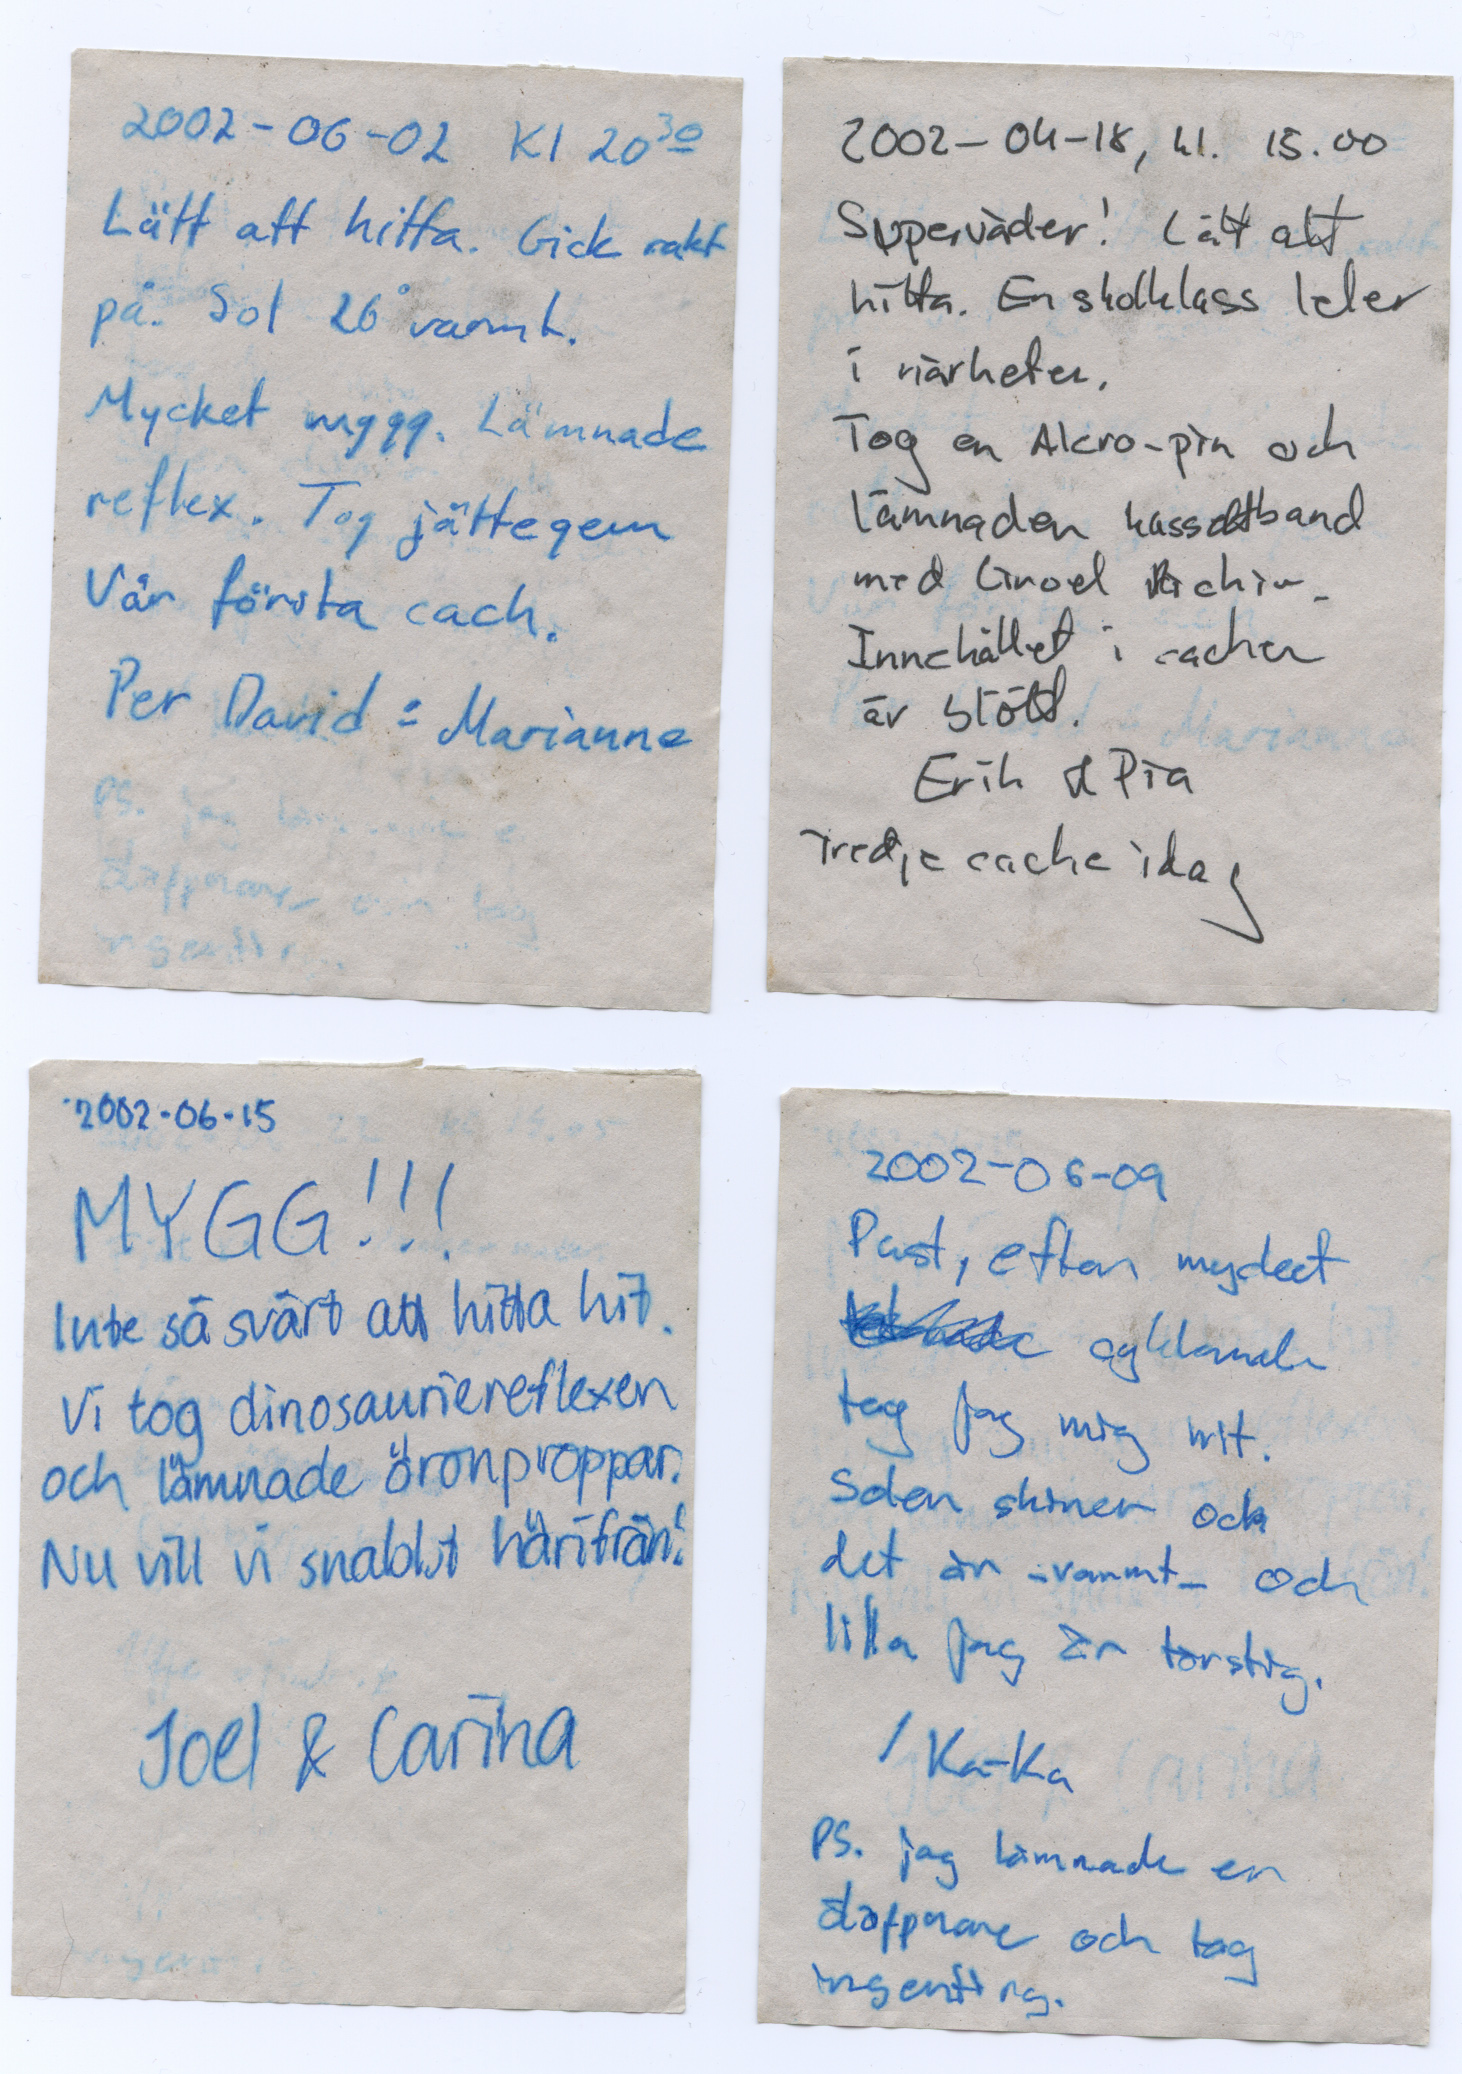 2002-06-02 Kl 20³⁰
Lätt att hitta. Gick rakt
på. Sol 26° varmt.
Mycket mygg. Lämnade
reflex. Tog jättegem
Vår första cach.
Per David = Marianne
2002-04-18, kl. 15.00
Superväder! Lätt att
hitta. En skolklass leker
i närheten.
Tog en Alcro-pin och
lämnaden kassettband
med Linoel Richie.
Innehållet i cachen
är blött.
Erik & Pia
Tredje cache idag
2002-06-15
MYGG!!!
Inte så svårt att hitta hit.
Vi tog dinosauriereflexen
och lämnade öronproppar.
Nu vill vi snabbt härifrån!
Joel & Carina
2002-06-09
Pust, efter mycket
cyklande
tog jag mig hit.
Solen skiner och
det är -varmt- och
lilla jag är törstig.
/Ka-Ka
PS. jag lämnade en
och tog
ingenting.